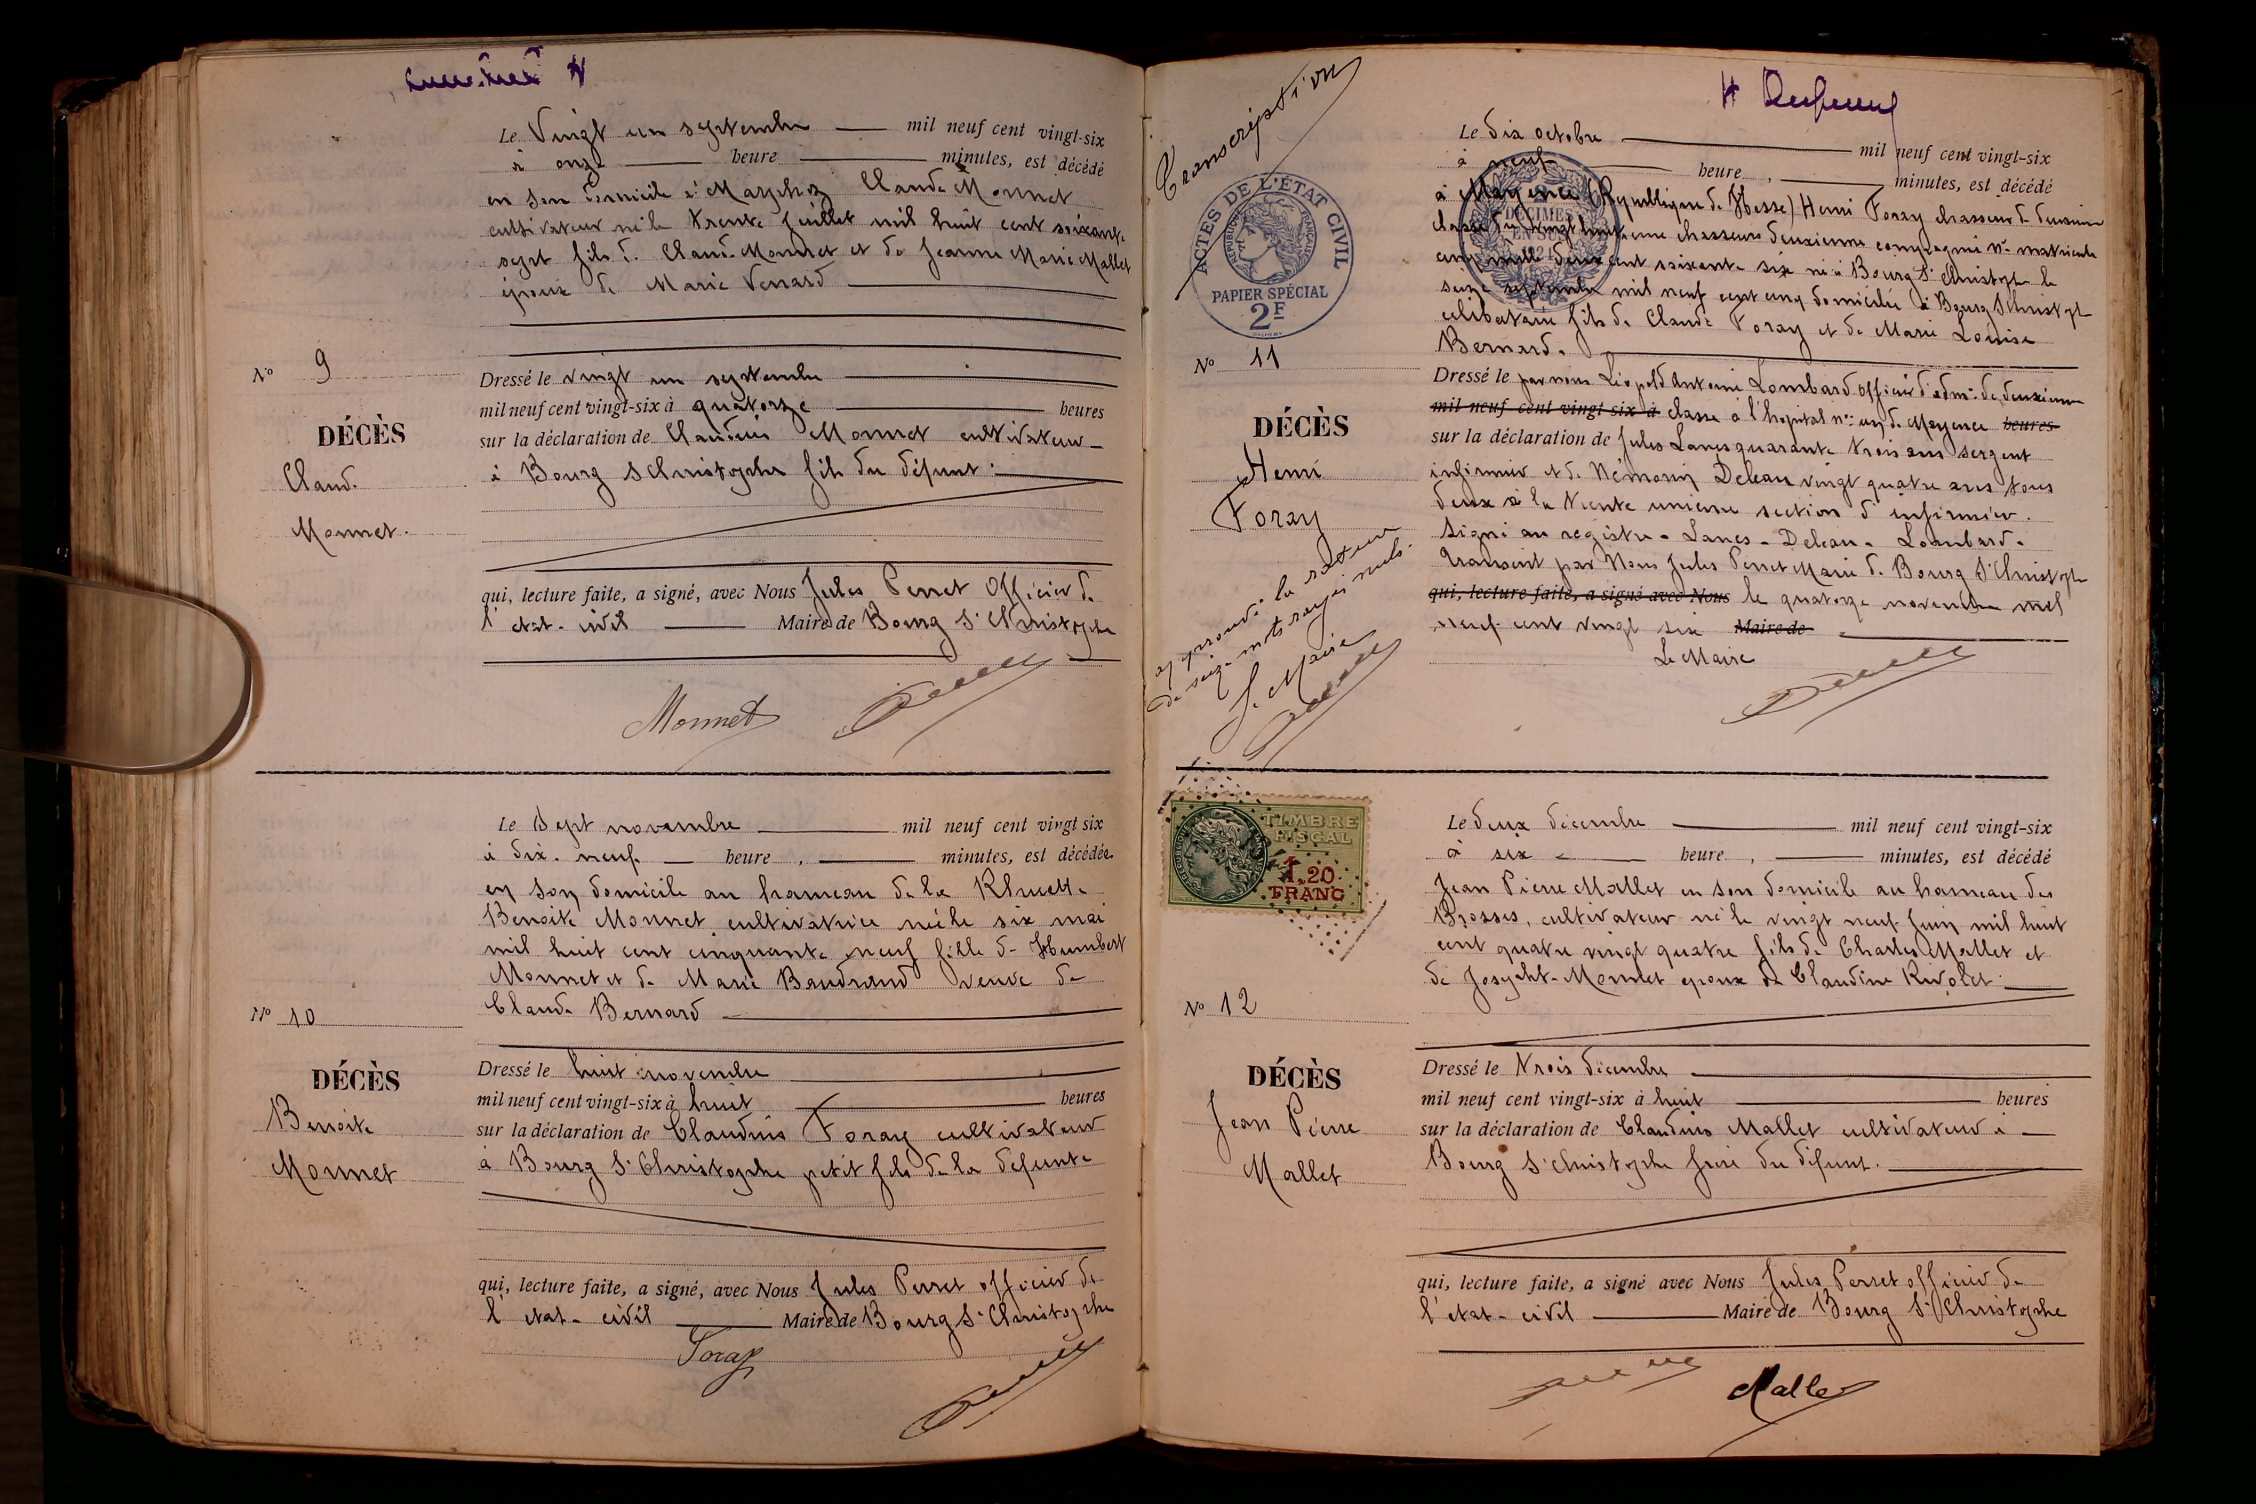 Le Vingt un septembre mil neuf cent vingt-six
à onze heure minutes, est décédé
en son domicile à Claude Monnet
cultivateur né le trente juillet mil huit cent soixante
sept fils de Claude Monnet et de Jeanne Marie Mallet
époux de Marie Venard
No 9
DÉCÈS
Claude
Monnet.
Dressé le vingt un septembre
mil neuf cent vingt-six à quatorze heures
sur la déclaration de Claudius Monnet cultivateur
à Bourg St Christophe fils du défunt.
qui, lecture faite, a signé, avec Nous Jules Perret Officier de
l'etat-civil Maire de Bourg St Christophe
Monnet
Le Sept novembre mil neuf cent vingt six
à dix-neuf heure, minutes, est décédée
en son domicile au hameau de la
Benoite Monnet cultivatrice née le six mai
mil huit cent cinquante neuf fille de Humbert
Monnet et de Marie Baudrand veuve de
Claude Bernard
No 10
DÉCÈS
Benoite
Monnet
Dressé le huit novembre
mil neuf cent vingt-six à huit heures
sur la déclaration de Claudius Foray cultivateur
à Bourg St Christophe petit fils de la defunte
qui, lecture faite, a signé, avec Nous Jules Perret officier de
l'etat-civil Maire de Bourg St Christophe
Foray
Transcription
ACTES DE L'ÉTAT CIVIL
RÉPUBLIQUE FRANÇAISE
PAPIER SPÉCIAL
2F
Le dix octobre mil neuf cent vingt-six
à neuf heure, minutes, est décédé
à Mayence (République de Hesse) Henri Foray chasseur de deuxième
classe du vingt huitième chasseurs deuxième compagnie No matricule
cinq mille deux cent soixante six né à Bourg St Christophe le
seize septembre mil neuf cent cinq domicilié à Bourg St Christophe
célibataire fils de Claude Foray et de Marie Louise
Bernard.
DÉCIMES
EN SUS
No 11
DÉCÈS
Henri
Foray
Dressé le par nous Léopold Antoine Lombard officier d'adm. de deuxième
mil neuf cent vingt-six à classe à l'hopital No un de Mayence heures
sur la déclaration de Jules Lanes quarante trois ans sergent
infirmier et de Némorin Deleau vingt quatre ans tous
deux à la trente unieme section d'infirmier.
Signé au registre - Lanes - Deleau - Lombard.
Transcrit par Nous Jules Perret Maire de Bourg St Christophe
qui, lecture faite, a signé avec Nous le quatorze novembre mil
neuf cent vingt six Maire de
Le Maire
approuvé la rature
de seize mots rayés nuls.
Le Maire
TIMBRE
FISCAL
1,20
FRANC
Le deux décembre mil neuf cent vingt-six
à six heure, minutes, est décédé
Jean Pierre Mallet en son domicile au hameau des
Brosses, cultivateur né le vingt neuf Juin mil huit
cent quatre vingt quatre fils de Charles Mallet et
de Monnet epoux de Claudine Rivolet
No 12
DÉCÈS
Jean Pierre
Mallet
Dressé le trois décembre
mil neuf cent vingt-six à huit heures
sur la déclaration de Claudius Mallet cultivateur à
Bourg St Christophe frère du défunt.
qui, lecture faite, a signé avec Nous Jules Perret officier de
l'etat-civil Maire de Bourg St Christophe
Mallet